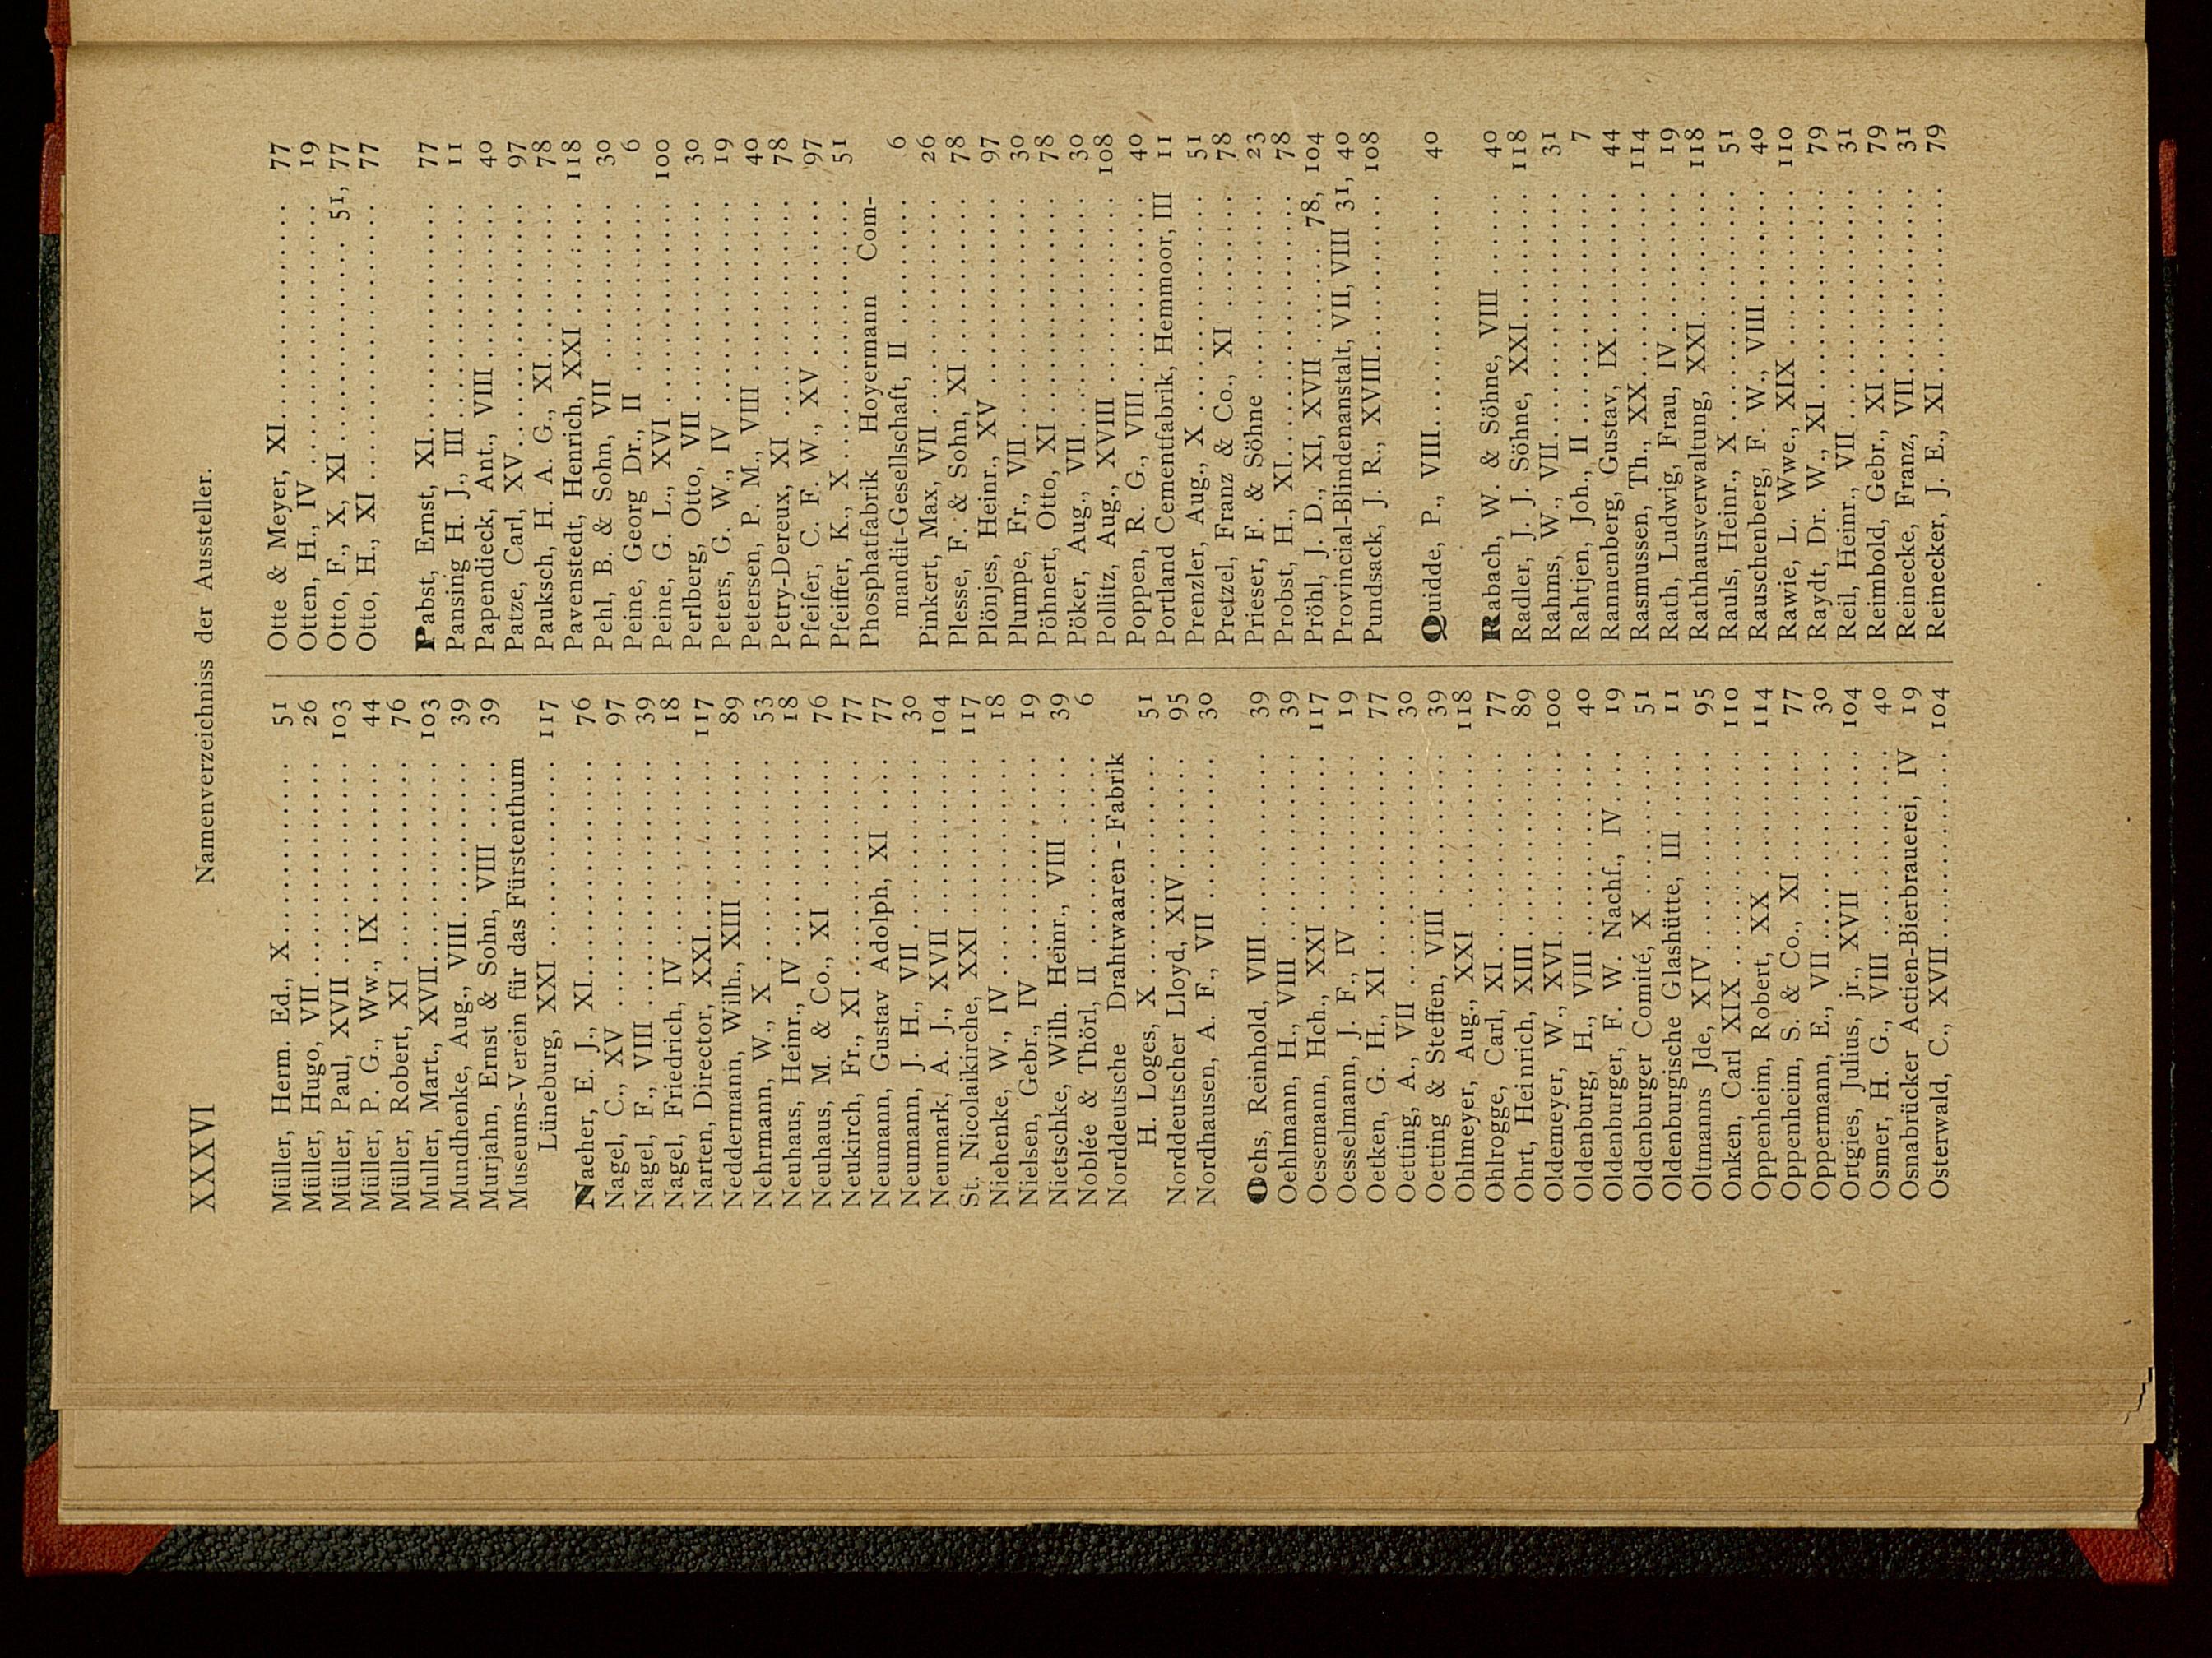 XXXVI Namenverzeichniss der Aussteller.
Müller, Herm. Ed., X.............. 51
Müller, Hugo, VII................ 26
Müller, Paul, XVII............... 103
Müller, P. G., Ww., IX........... 44
Müller, Robert, XI .............. 76
Muller, Mart., XVII.............. 103
Mundhenke, Aug., VIII........... 39
Murjahn, Ernst & Sohn, VIII ..... 39
Museums-Verein für das Fürstenthum
Lüneburg, XXI ............... 117
Naeher, E. J., XI................ 76
Nagel, C., XV ................... 97
Nagel, F., VIII.................. 39
Nagel, Friedrich, IV............. 18
Narten, Director, XXI............ 117
Neddermann, Wilh., XIII.......... 89
Nehrmann, W., X ................. 53
Neuhaus, Heinr., IV.............. 18
Neuhaus, M. & Co., XI ........... 76
Neukirch, Fr., XI................ 77
Neumann, Gustav Adolph, XI .... 77
Neumann, J. H., VII ............. 30
Neumark, A. J., XVII ............ 104
St. Nicolaikirche, XXI........... 117
Niehenke, W., IV ................ 18
Nielsen, Gebr., IV .............. 19
Nietschke, Wilh. Heinr., VIII ..... 39
Noblée & Thörl, II .............. 6
Norddeutsche Drahtwaaren-Fabrik
H. Loges, X ................. 51
Norddeutscher Lloyd, XIV......... 95
Nordhausen, A. F., VII .......... 30
Ochs, Reinhold, VIII............. 39
Oehlmann, H., VIII .............. 39
Oesemann, Hch., XXI ............. 117
Oesselmann, J. F., IV ........... 19
Oetken, G. H., XI................ 77
Oetting, A., VII ................ 30
Oetting & Steffen, VIII ......... 39
Ohlmeyer, Aug., XXI ............. 118
Ohlrogge, Carl, XI............... 77
Ohrt, Heinrich, XIII............. 89
Oldemeyer, W., XVI............... 100
Oldenburg, H., VIII ............. 40
Oldenburger, F. W. Nachf., IV.... 19
Oldenburger Comité, X ........... 51
Oldenburgische Glashütte, III .... 11
Oltmanns Jde, XIV................ 95
Onken, Carl XIX ................. 110
Oppenheim, Robert, XX ........... 114
Oppenheim, S. & Co., XI.......... 77
Oppermann, E., VII............... 30
Ortgies, Julius, jr., XVII ...... 104
Osmer, H. G., VIII .............. 40
Osnabrücker Actien-Bierbrauerei, IV 19
Osterwald, C., XVII.............. 104
Otte & Meyer, XI................. 77
Otten, H., IV ................... 19
Otto, F., X, XI.............. 51, 77
Otto, H., XI .................... 77
Pabst, Ernst, XI................. 77
Pansing H. J., III .............. 11
Papendieck, Ant., VIII........... 40
Patze, Carl, XV.................. 97
Pauksch, H. A. G., XI............ 78
Pavenstedt, Henrich, XXI ........ 118
Pehl, B. & Sohn, VII ............ 30
Peine, Georg Dr., II ............ 6
Peine, G. L., XVI ............... 100
Perlberg, Otto, VII.............. 30
Peters, G. W., IV ............... 19
Petersen, P. M., VIII ........... 40
Petry-Dereux, XI ................ 78
Pfeifer, C. F. W., XV ........... 97
Pfeiffer, K., X.................. 51
Phosphatfabrik Hoyermann Com-
mandit-Gesellschaft, II ......... 6
Pinkert, Max, VII................ 26
Plesse, F. & Sohn, XI............ 78
Plönjes, Heinr., XV ............. 97
Plumpe, Fr., VII................. 30
Pöhnert, Otto, XI................ 78
Pöker, Aug., VII................. 30
Pollitz, Aug., XVIII ............ 108
Poppen, R. G., VIII.............. 40
Portland Cementfabrik, Hemmoor, III 11
Prenzler, Aug., X................ 51
Pretzel, Franz & Co., XI ........ 78
Prieser, F. & Söhne ............. 23
Probst, H., XI................... 78
Pröhl, J. D., XI, XVII ....... 78, 104
Provincial-Blindenanstalt, VII, VIII 31, 40
Pundsack, J. R., XVIII........... 108
Quidde, P., VIII................. 40
Rabach, W. & Söhne, VIII ....... 40
Radler, J. J. Söhne, XXI......... 118
Rahms, W., VII................... 31
Rahtjen, Joh., II ............... 7
Rannenberg, Gustav, IX........... 44
Rasmussen, Th., XX............... 114
Rath, Ludwig, Frau, IV........... 19
Rathhausverwaltung, XXI.......... 118
Rauls, Heinr., X ................ 51
Rauschenberg, F. W., VIII........ 40
Rawie, L. Wwe., XIX ............. 110
Raydt, Dr. W., XI................ 79
Reil, Heinr., VII................ 31
Reimbold, Gebr., XI.............. 79
Reinecke, Franz, VII............. 31
Reinecker, J. E., XI............. 79